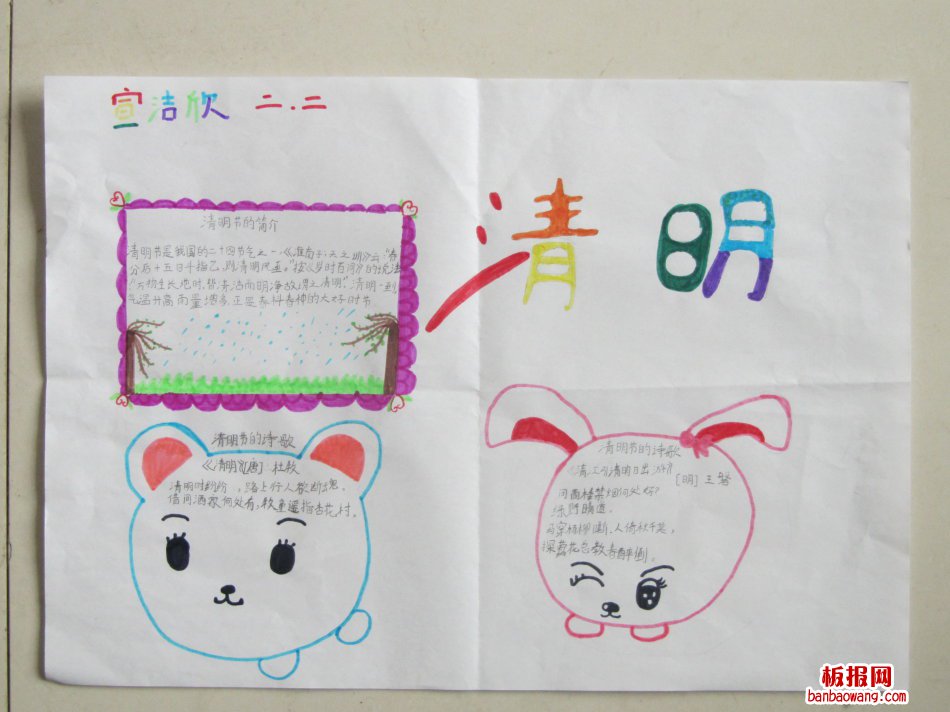 宣洁欣 二.二
清明
清明节的简介
清明节是我国的二十四节气之一.《淮南子·天文训》云"春
分后十五日斗指乙,则清明风至."按《岁时百问》的说法
"万物生长此时,皆清洁而明净故谓之清明."清明一到
气温升高雨量增多,正是春耕春种的大好时节.
清明节的诗歌
《清明》[唐] 杜牧
清明时纷纷,路上行人欲断魂.
借问酒家何处有,牧童遥指杏花村.
清明节的诗歌
《清江引清明日出游》
[明] 王磐
问西楼禁烟何处好?
绿野晴道.
马穿杨柳嘶,人倚秋千笑,
探莺花总教春醉倒.
板报网
banbaowang.com